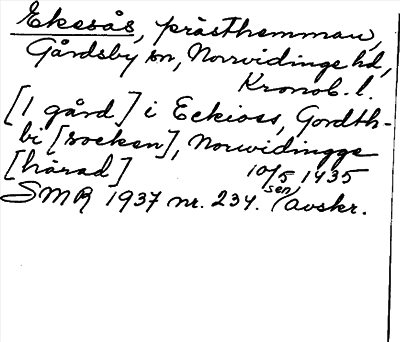 Ekesås, prästhemman,
Gårdsby sn, Norrvidinge hd,
Kronob. l.
[1 gård] i Eckioss, Gordth-
bi [socken], Norwidingge
[härad] 10/5 1435
SMR 1937 nr. 234. (sen avskr.